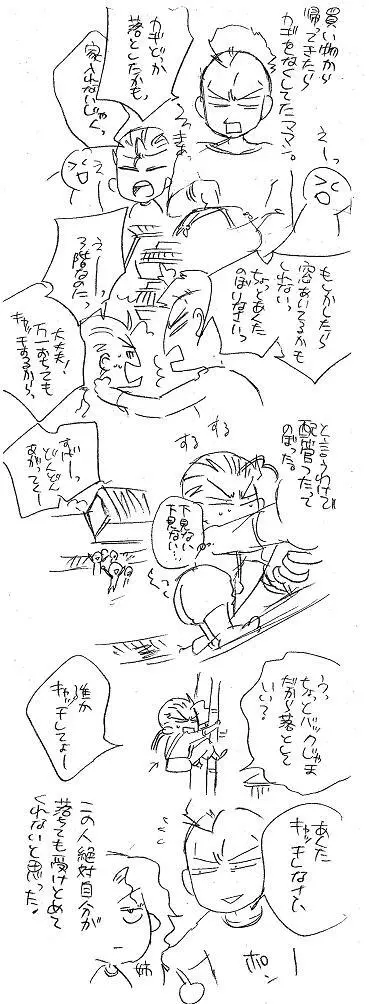 買い物から
帰ってきたら
カギをなくしてたママン。
カギどっか
落としたかも、
家入れないじゃん、
えーっ
えーっ
もしかしたら
窓あいてるかも
しれないっ
ちょっとあくた
のぼりなさいっ
えーっ
3階なのだっ
大丈夫!
万一おちても
キャッチするから、
と言うわけで
配管つたって
のぼった。
する
する
すげーっ
どんどん
あがってくー
下見ない、
下見ない…!
うっ
ちょっとバックじゃま
だから落として
いい?
誰か
キャッチしてよー
あくた
キャッチしなさい、
ポーン
姉
この人絶対自分が
落ちても受けとめて
くれないと思った。